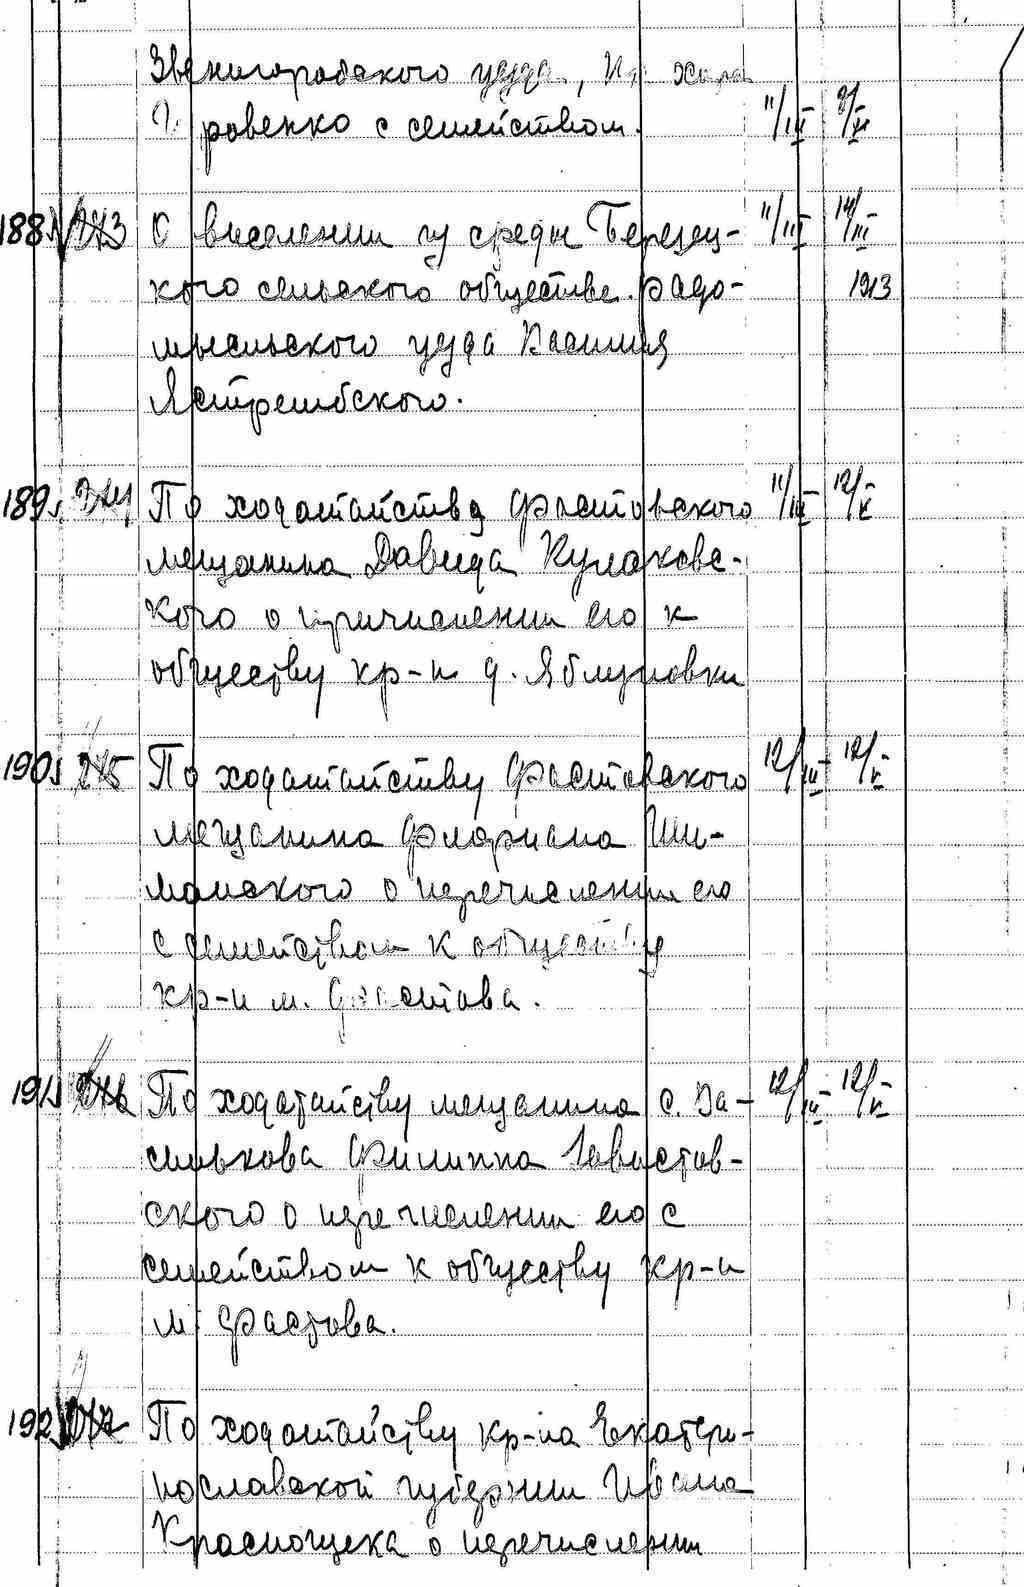 Звенигородского уезда,
ровенко с семейством. 11/III 8/VI
188 273 О выселении из среды Березец- 11/III 14/III
кого сельского общества Радо- 1913
мысльского уезда Василия
Ястрембского.
189 274 По ходатайству Фастовского 11/III 12/V
мещанина Давида Кулаковс-
кого о причислении его к
обществу кр-н д. Яблуновки
190 275 По ходатайству Фастовского 12/III 12/V
мещанина Флориана Ши-
манского о перечислении его
с семейством к обществу
кр-н м. Фастова.
191 276 По ходатайству мещанина с. Ва- 12/III 12/V
силькова Филиппа
ского о перечислении его с
семейством к обществу кр-н
м. Фастова.
192 277 По ходатайству кр-на Екатери-
нославской губернии Ивана
Краснощека о перечислении